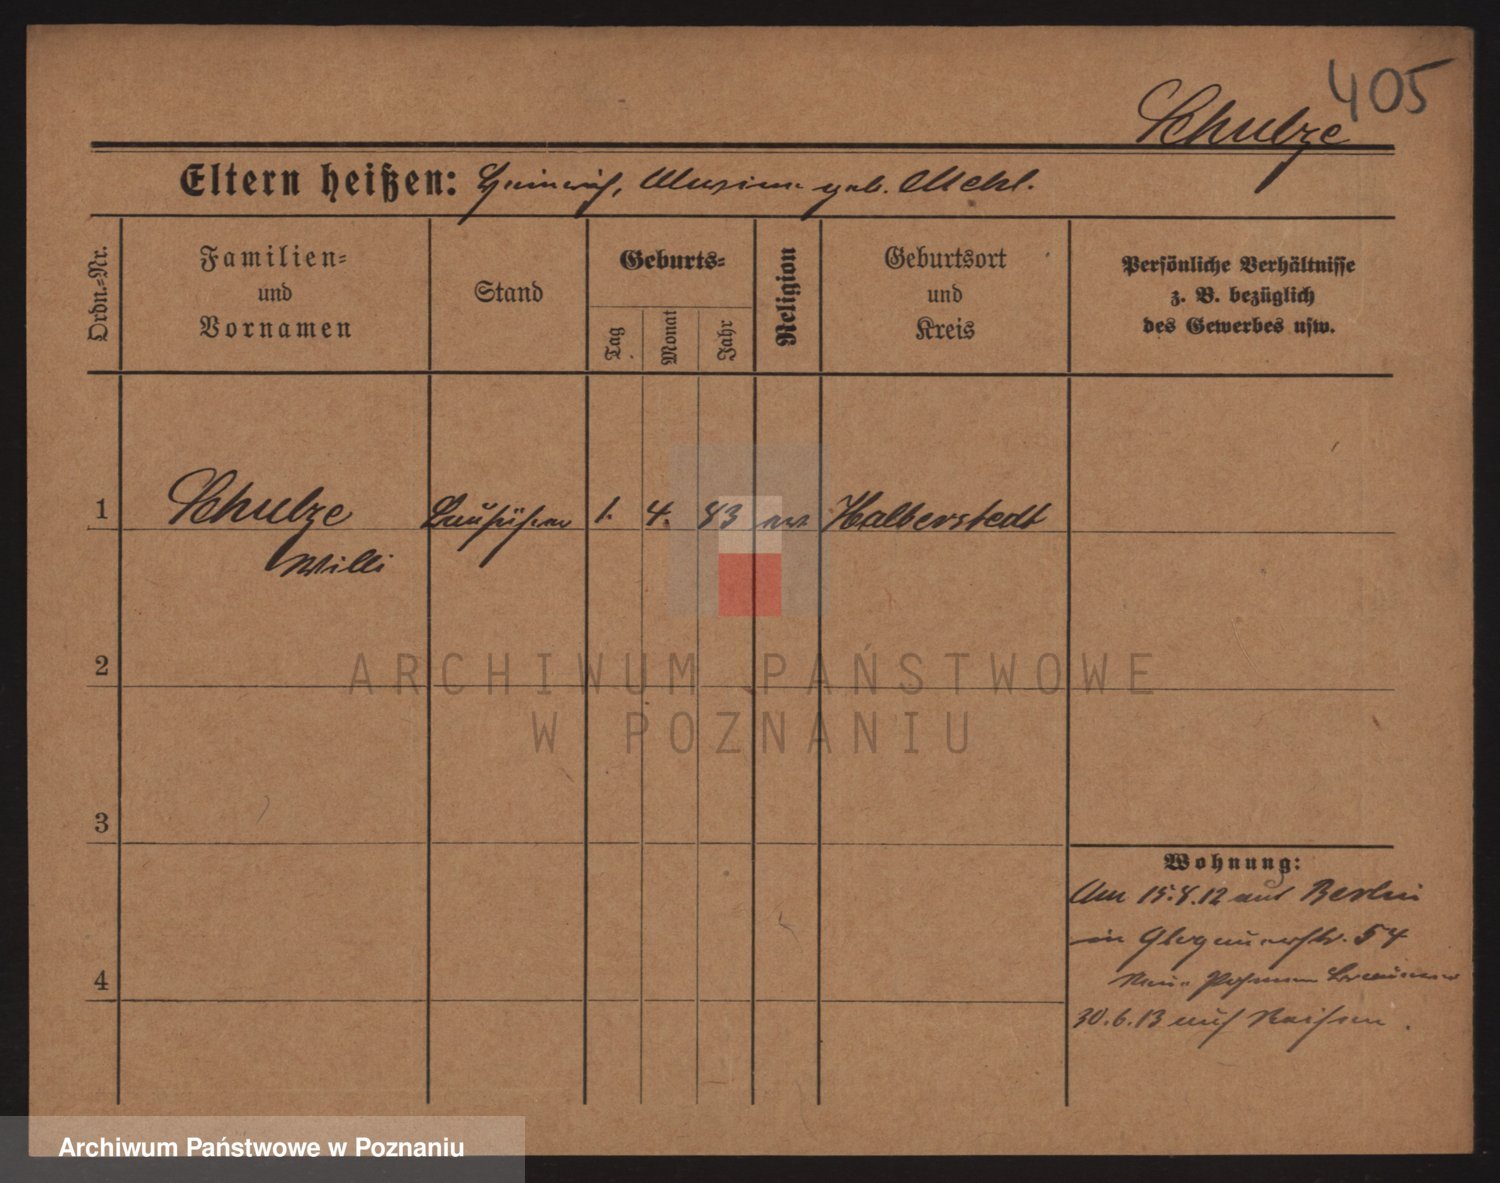 405
Schulze
Eltern heißen: Heinrich, geb. Mehl.
Ordn.-Nr.
Familien-
und
Vornamen
Stand
Geburts-
Tag
Monat
Jahr
Religion
Geburtsort
und
Kreis
Persönliche Verhältnisse
z. B. bezüglich
des Gewerbes usw.
1
Schulze
Willi
1. 4. 83
Halberstedt
2
3
4
Wohnung:
Am 15.8.12 aus Berlin
in Glogauerstr. 54
30.6.13 auf Reisen.
ARCHIWUM PAŃSTWOWE
W POZNANIU
Archiwum Państwowe w Poznaniu